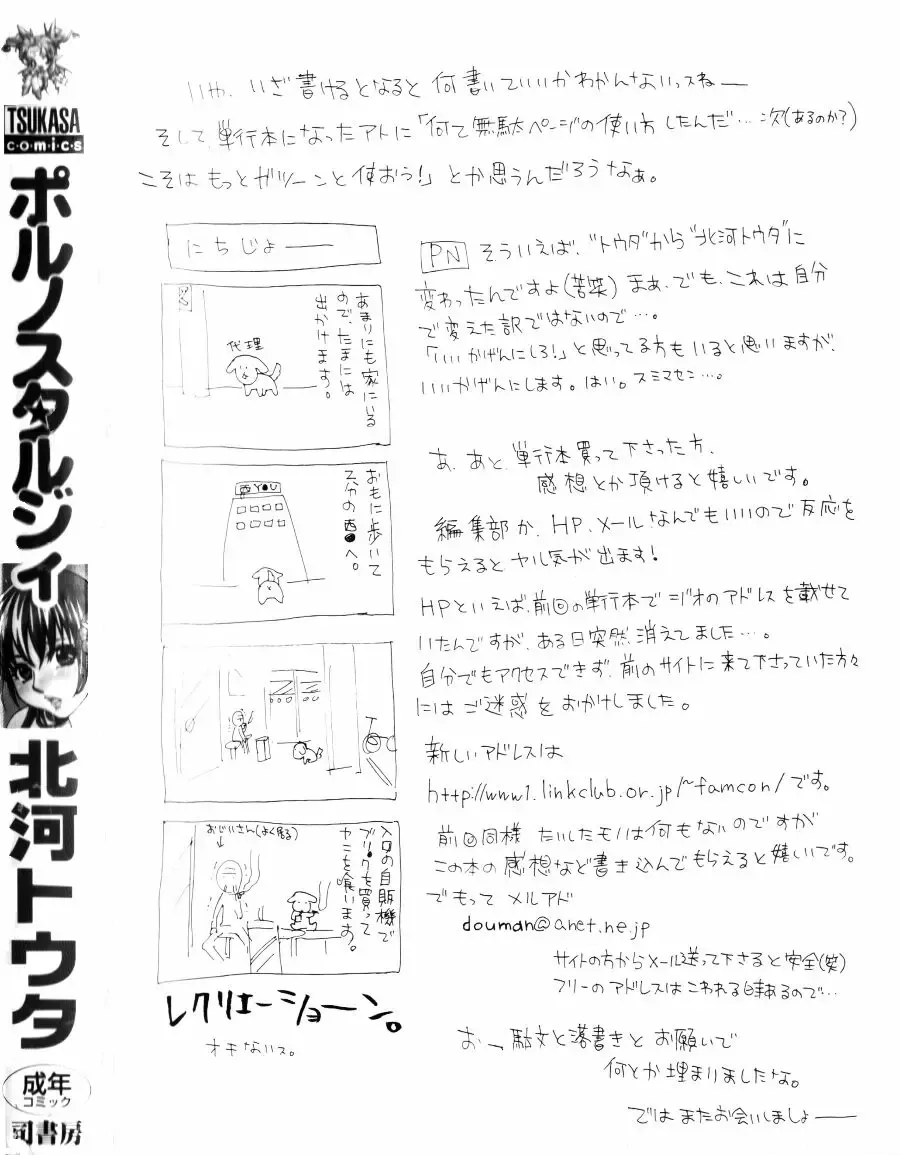 TSUKASA
c・o・m・i・c・s
ポルノスタルジィ
北河トウタ
成年
コミック
司書房
いや、いざ書けるとなると何書いていいかわかんないっスねー
そして単行本になったアトに「何て無駄ページの使い方したんだ…次(あるのか?)
こそはもっとガツーンと使おう!」とか思うんだろうなぁ。
にちじょーー
あまりにも家にいる
ので、たまには
出かけます。
代理
おもに歩いて
又分の西●へ。
西YOU
入口の自販機で
ブリ●クを買って
ヤニを喰います。
おじいさん(よく居る)
レクリエーショーン。
オチないス。
PN そういえば、"トウタ"から"北河トウタ"に
変わったんですよ(苦笑)まぁ、でも、これは自分
で変えた訳ではないので…。
「いいかげんにしろ!」と思ってる方もいると思いますが、
いいかげんにします。はい。スミマセン…。
あ、あと、単行本買って下さった方、
感想とか頂けると嬉しいです。
編集部か、HP、メールなんでもいいので反応を
もらえるとヤル気が出ます!
HPといえば、前回の単行本でジオのアドレスを載せて
いたんですが、ある日突然消えてました…。
自分でもアクセスできず、前のサイトに来て下さっていた方々
にはご迷惑をおかけしました。
新しいアドレスは
http://www1.linkclub.or.jp/~famcon/です。
前回同様たいしたモノは何もないのですが
この本の感想など書き込んでもらえると嬉しいです。
でもってメルアド
douman@anet.ne.jp
サイトの方からメール送って下さると安全(笑)
フリーのアドレスはこわれる時あるので…
おー、駄文と落書きとお願いで
何とか埋まりましたな。
ではまたお会いしましょーー